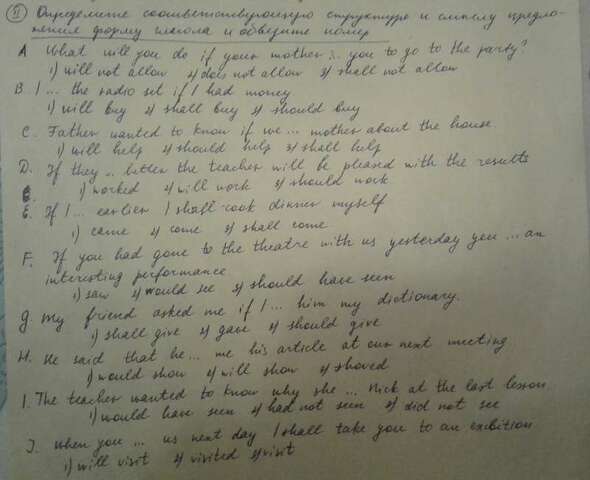 II Определите соответствующую структуре и смыслу предло-
жения форму глагола и обведите номер
A What will you do if your mother ... you to go to the party?
1) will not allow 2) does not allow 3) shall not allow
B. I ... the radio set if I had money
1) will buy 2) shall buy 3) should buy
C. Father wanted to know if we ... mother about the house.
1) will help 2) should help 3) shall help
D. If they ... better the teacher will be pleased with the results
1) worked 2) will work 3) should work
E. If I ... earlier I shall cook dinner myself
1) came 2) come 3) shall come
F. If you had gone to the theatre with us yesterday you ... an
interesting performance
1) saw 2) would see 3) should have seen
G. My friend asked me if I ... him my dictionary.
1) shall give 2) gave 3) should give
H. He said that he ... me his article at our next meeting
1) would show 2) will show 3) showed
I. The teacher wanted to know why she ... Nick at the last lesson
1) would have seen 2) had not seen 3) did not see
J. When you ... us next day I shall take you to an exibition
1) will visit 2) visited 3) visit